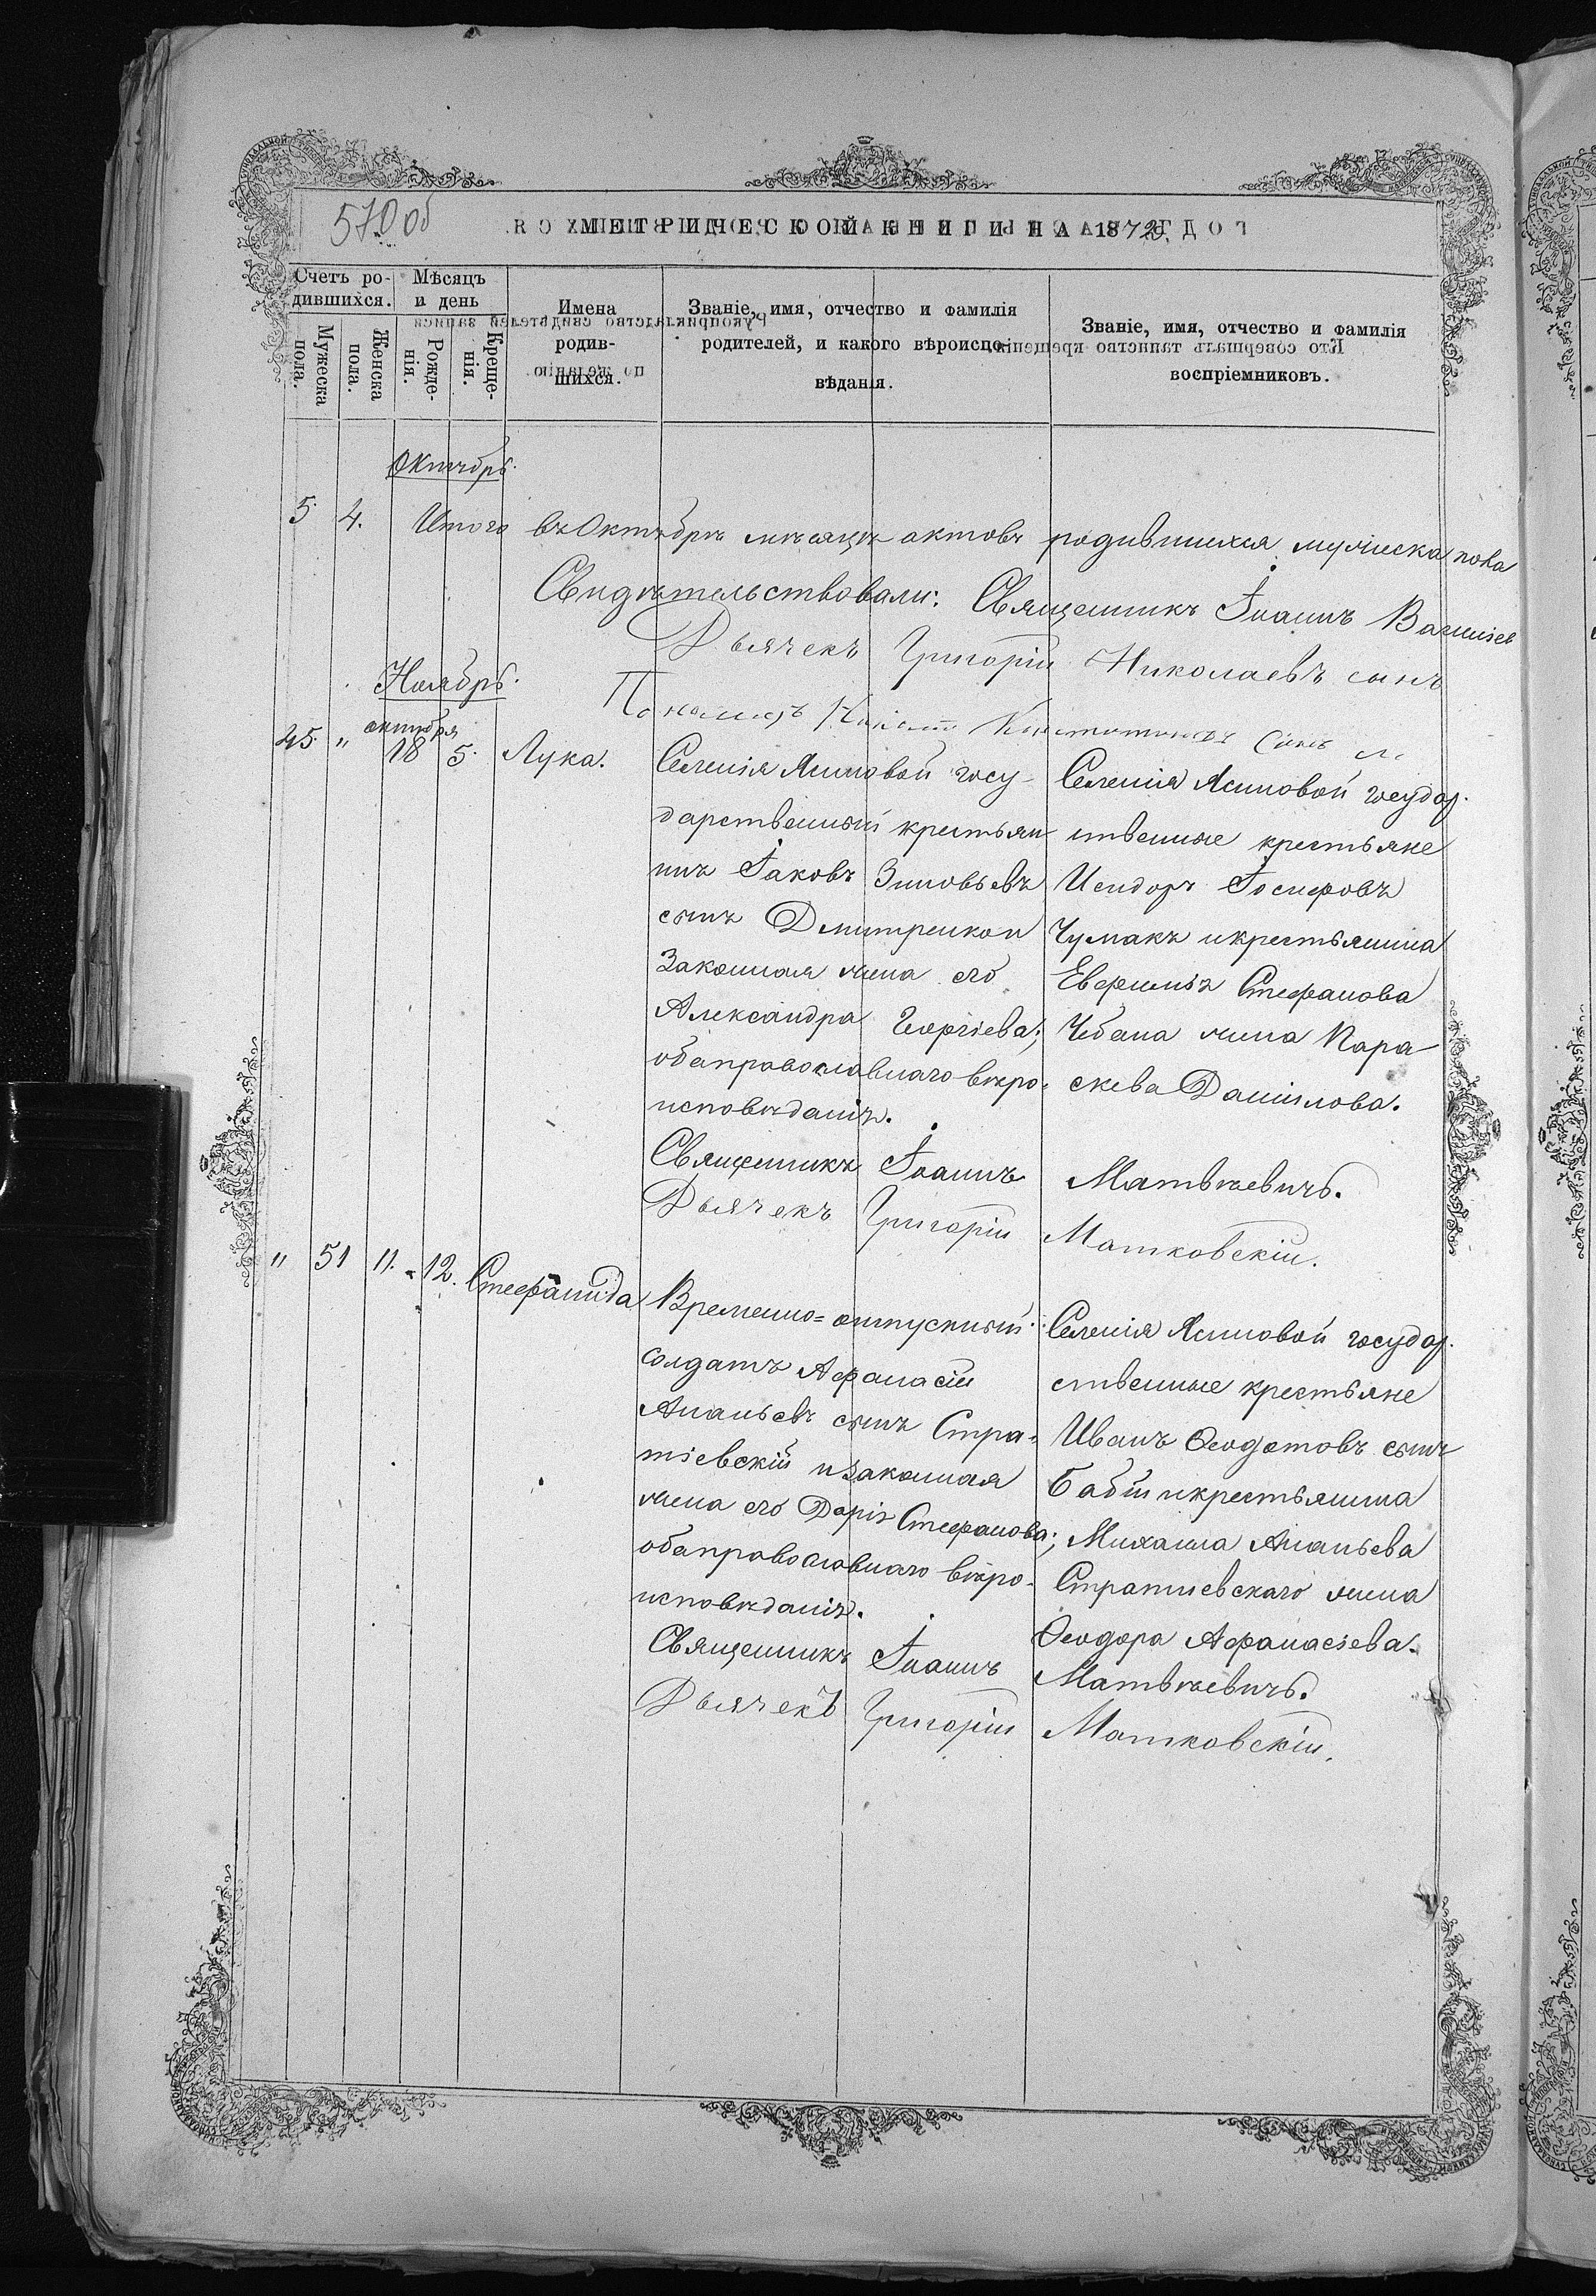 570 об
МЕТРИЧЕСКОЙ КНИГИ НА 1872
Счетъ ро-
дившихся.
Мужеска
пола.
Женска
пола.
Мѣсяцъ
и день
Рожде-
нія.
Креще-
нія.
Имена
родив-
шихся.
Званіе, имя, отчество и фамилія
родителей, и какого вѣроиспо-
вѣданія.
Званіе, имя, отчество и фамилія
воспріемниковъ.
Октябрь.
5. 4. Итого въ Октябрѣ мѣсяцѣ актовъ родившихся мужеска пола
Свидѣтельствовали: Священникъ Іоаннъ
Дьячекъ Григорій Николаевъ сынъ
Ноябрь.
Пономарь
45. " октября 18 5. Лука.
Селенія Ясиновой госу-
дарственный крестьян
инъ Іаковъ Зиновьевъ
сынъ Дмитренко и
Законная жена его
Александра Георгіева;
оба православнаго вѣро-
исповѣданія.
Селенія Ясиновой государ-
ственные крестьяне
Исидоръ Іосифовъ
Чумакъ и крестьянина
Евфимія Стефанова
Чебана жена Пара-
скева Даніилова.
Священникъ Іоаннъ Матвѣевичъ.
Дьячекъ Григорій Матковскій.
" 51 11. 12. Стефанида
Временно=отпускный
солдатъ Афанасій
Ананьевъ сынъ Стра-
тіевскій и законная
жена его Дарія Стефанова;
оба православнаго вѣро-
исповѣданія.
Селенія Ясиновой государ-
ственные крестьяне
Иванъ Ѳеодотовъ сынъ
Бабій и крестьянина
Михаила Ананьева
Стратиевскаго жена
Ѳеодора Афанасіева.
Священникъ Іоаннъ Матвѣевичъ.
Дьячекъ Григорій Матковскій.